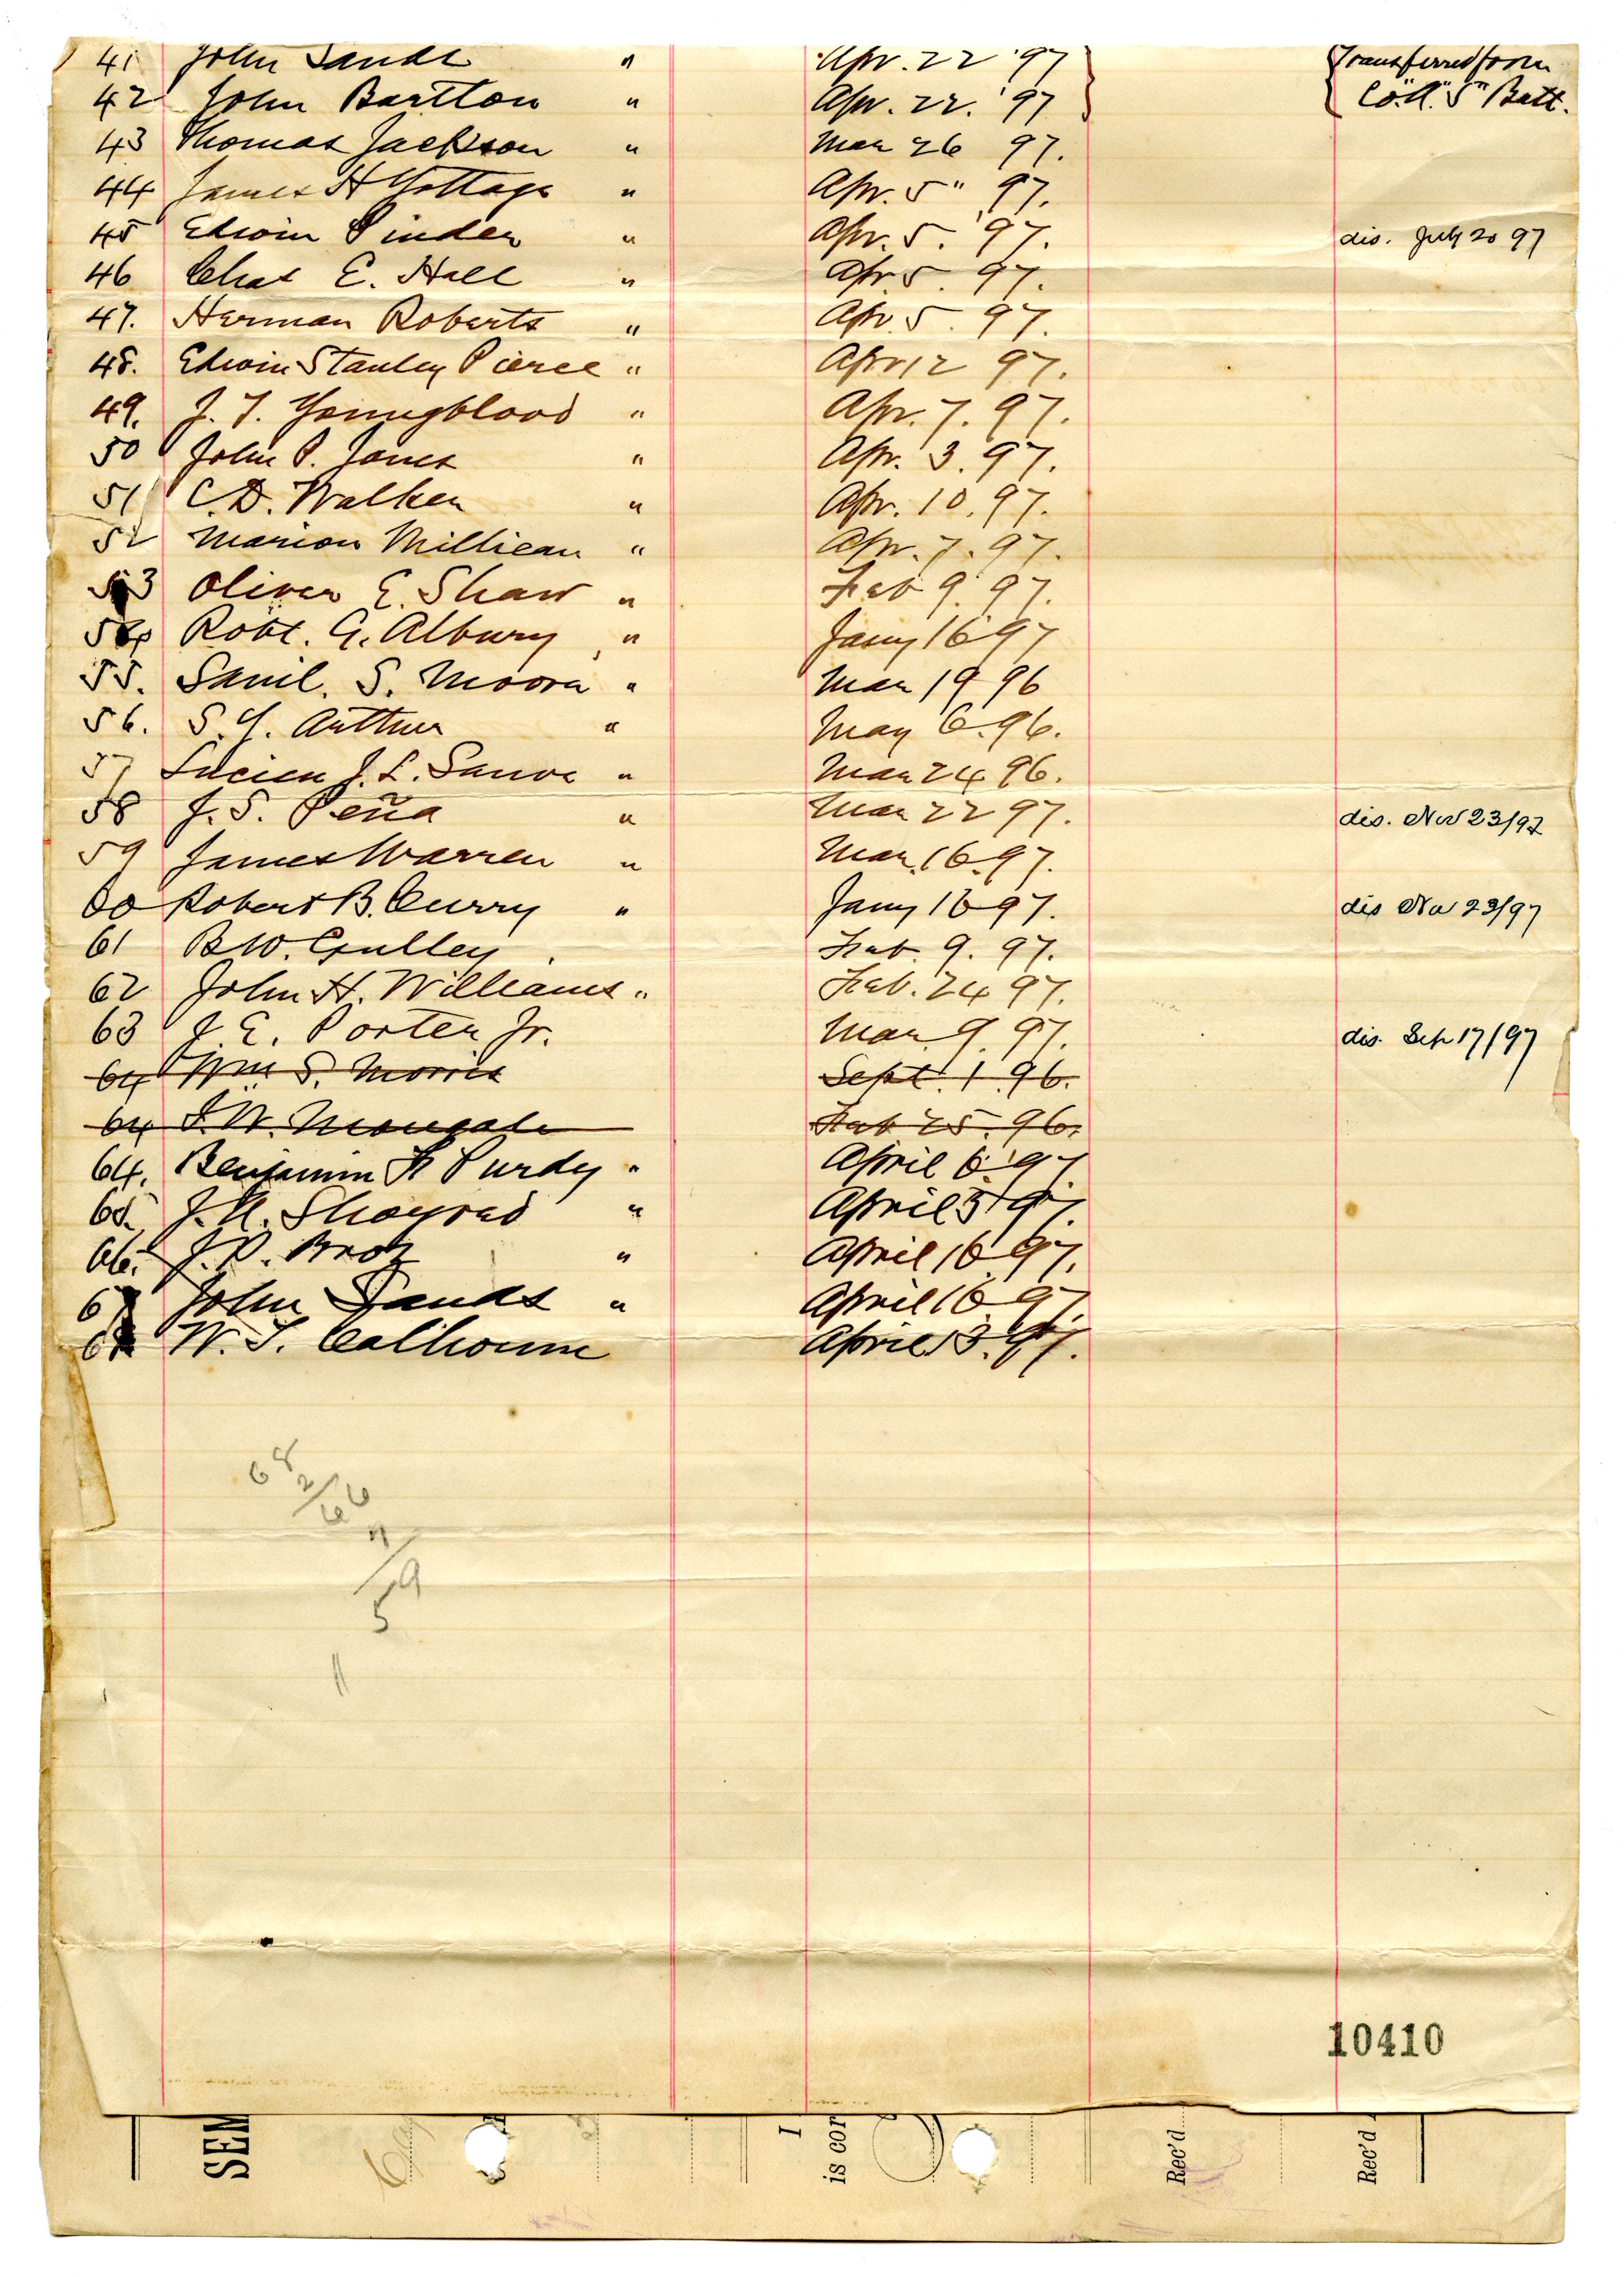 41 John Sands " Apr. 22 '97 Transferred from
42 John Bartton " Apr. 22. '97 Co. "A" 5" Batt.
43 Thomas Jackson " Mar 26 97.
44 James H Gottage " Apr. 5" 97.
45 Edwin Pinder " Apr. 5. '97. dis. July 20 97
46 Chas E. Hall " Apr. 5 97.
47. Herman Roberts " Apr. 5. 97.
48. Edwin Stanley Pierce " Apr 12 97.
49. J. T. Youngblood " Apr. 7. 97.
50 John P. Jones " Apr. 3. 97.
51 C. D. Walker " Apr. 10. 97.
52 Marion Millican " Apr. 7. 97.
53 Oliver E. Shaw " Feb 9. 97.
54 Robt. G. Albury " Jany 16 97
55. Saml. S. Moore " Mar 19 96
56. S. Y. Arthur " May 6. 96.
57 Lucien J. L. Sauve " Mar 24 96.
58 J. S. Peña " Mar 22 97. dis. Nov 23/97
59 James Warren " Mar. 16. 97.
60 Robert B. Curry " Jany 16 97. dis Nov 23/97
61 B. W. Gulley . Feb. 9. 97.
62 John H. Williams " Feb. 24 97.
63 J. E. Porter Jr. Mar. 9. 97. dis. Sep 17/97
64 Wm S. Morris Sept. 1 96.
64 Feb 25. 96.
64. Benjamin H Purdy " April 6 97
65. J. A. " April 5 97.
66. J. P. " April 16 97.
67 John Sands " April 16 97.
68 W. S. Calhoun April 13. 97.
68
2
66
7
59
10410
SEM
I
is cor
Rec'd
Rec'd